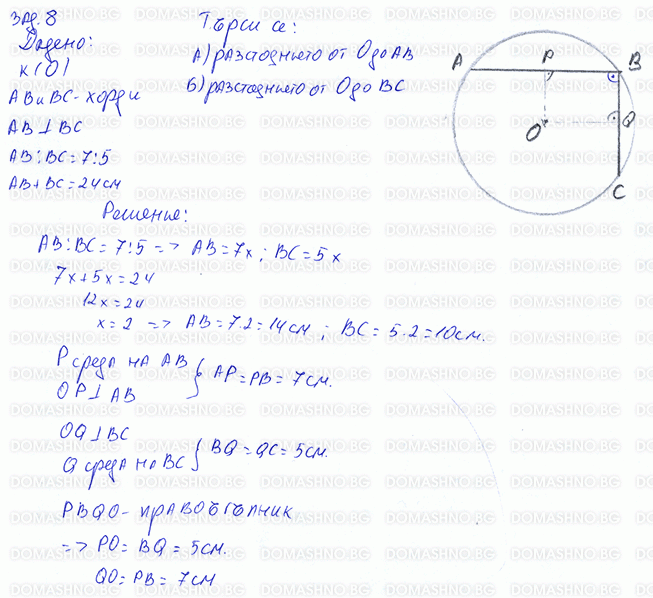 Зад. 8
Дадено:
k(O)
AB и BC - хорди
AB ⊥ BC
AB:BC = 7:5
AB + BC = 24 см
Търси се:
А) разстоянието от О до АВ
Б) разстоянието от О до ВС
A P B
O Q
C
Решение:
AB:BC = 7:5 => AB = 7x ; BC = 5x
7x + 5x = 24
12x = 24
x = 2 => AB = 7.2 = 14 см ; BC = 5.2 = 10 см.
P среда на AB } AP = PB = 7 см.
OP ⊥ AB
OQ ⊥ BC } BQ = QC = 5 см.
Q среда на BC
PBQO - правоъгълник
=> PO = BQ = 5 см.
QO = PB = 7 см